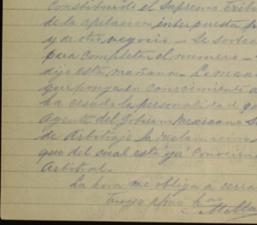 Constituido el Supremo Tribu
de la apelacion interpuesta p
y de otro negocio — Se sorteo
para completar el número —
dijo esta mañana. La man
que ponga en conocimiento d
ha cesado la personalidad q
Agente del Gobierno Mexicano
de Arbitraje la reclamacion
que del cual está ya conocien
Arbitral.
La hora me obliga a cerra